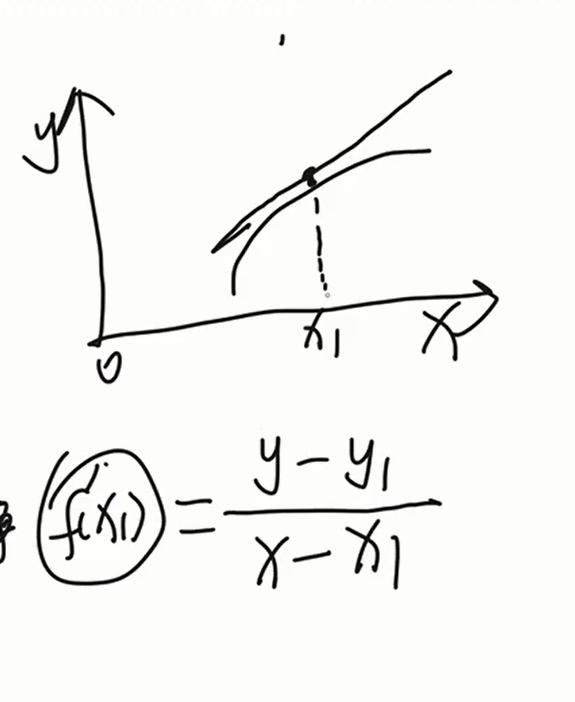 y
0 x₁ x
f'(x₁) = (y - y₁)/(x - x₁)